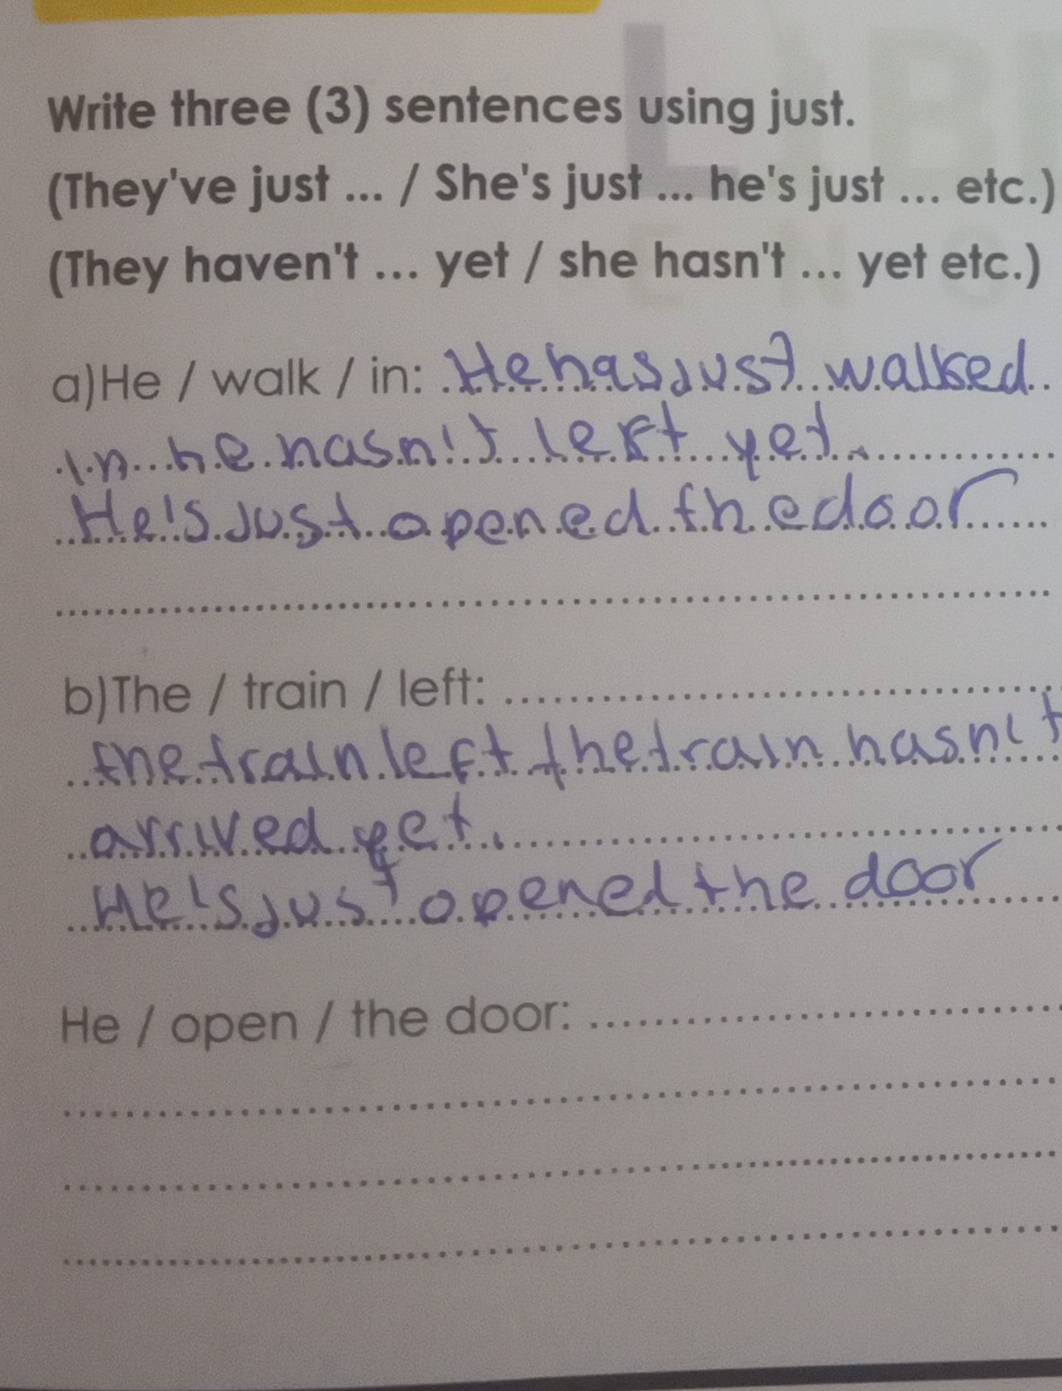 Write three (3) sentences using just.
(They've just ... / She's just ... he's just ... etc.)
(They haven't ... yet / she hasn't ... yet etc.)
a)He / walk / in: He has just walked
in he hasn't left yet.
He's just opened the door
b)The / train / left:
the train left the train hasn't
arrived yet.
He's just opened the door
He / open / the door: